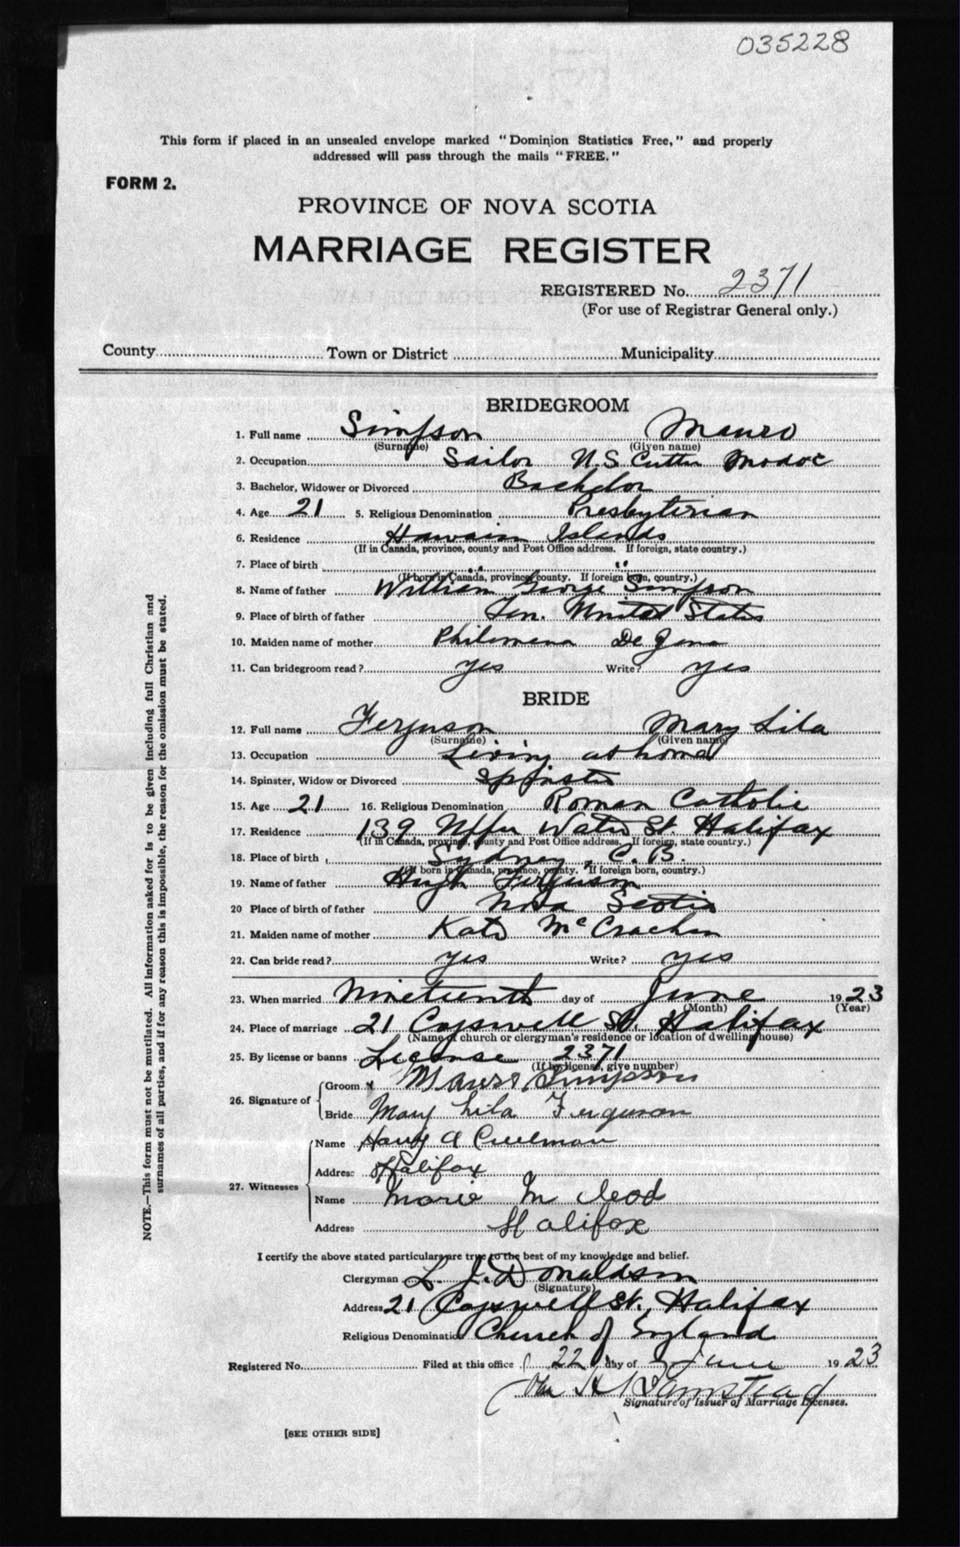 035228
This form if placed in an unsealed envelope marked "Dominion Statistics Free," and properly
addressed will pass through the mails "FREE."
FORM 2.
PROVINCE OF NOVA SCOTIA
MARRIAGE REGISTER
REGISTERED No. 2371
(For use of Registrar General only.)
County Town or District Municipality
BRIDEGROOM
1. Full name Simpson Mauro
(Surname) (Given name)
2. Occupation Sailor U.S Cutter Modoc
3. Bachelor, Widower or Divorced Bachelor
4. Age 21 5. Religious Denomination Presbyterian
6. Residence Hawaiin Islands
(If in Canada, province, county and Post Office address. If foreign, state country.)
7. Place of birth " "
(If born in Canada, province, county. If foreign born, country.)
8. Name of father William George Simpson
9. Place of birth of father Ten. United States
10. Maiden name of mother Philomena De
11. Can bridegroom read? yes Write? yes
BRIDE
12. Full name Ferguson Mary Lila
(Surname) (Given name)
13. Occupation Living at home
14. Spinster, Widow or Divorced Spinster
15. Age 21 16. Religious Denomination Roman Catholic
17. Residence 139 Upper Water St. Halifax
(If in Canada, province, county and Post Office address. If foreign, state country.)
18. Place of birth Sydney, C.B.
(If born in Canada, province, county. If foreign born, country.)
19. Name of father Hugh Ferguson
20 Place of birth of father Nova Scotia
21. Maiden name of mother Kate
22. Can bride read? yes Write? yes
23. When married Nineteenth day of June 1923
(Month) (Year)
24. Place of marriage 21 Cogswell St. Halifax
(Name of church or clergyman's residence or location of dwelling house)
25. By license or banns License 2371
(If by license, give number)
26. Signature of Groom x Mauro Simpson
Bride Mary Lila Ferguson
27. Witnesses Name Harry A Creelman
Address Halifax
Name Marie McLeod
Address Halifax
I certify the above stated particulars are true to the best of my knowledge and belief.
Clergyman L. J. Donaldson
(Signature)
Address 21 Cogswell St., Halifax
Religious Denomination Church of England
Registered No. Filed at this office 22 day of June 1923
Signature of Issuer of Marriage Licenses.
[SEE OTHER SIDE]
NOTE.—This form must not be mutilated. All information asked for is to be given including full Christian and
surnames of all parties, and if for any reason this is impossible, the reason for the omission must be stated.